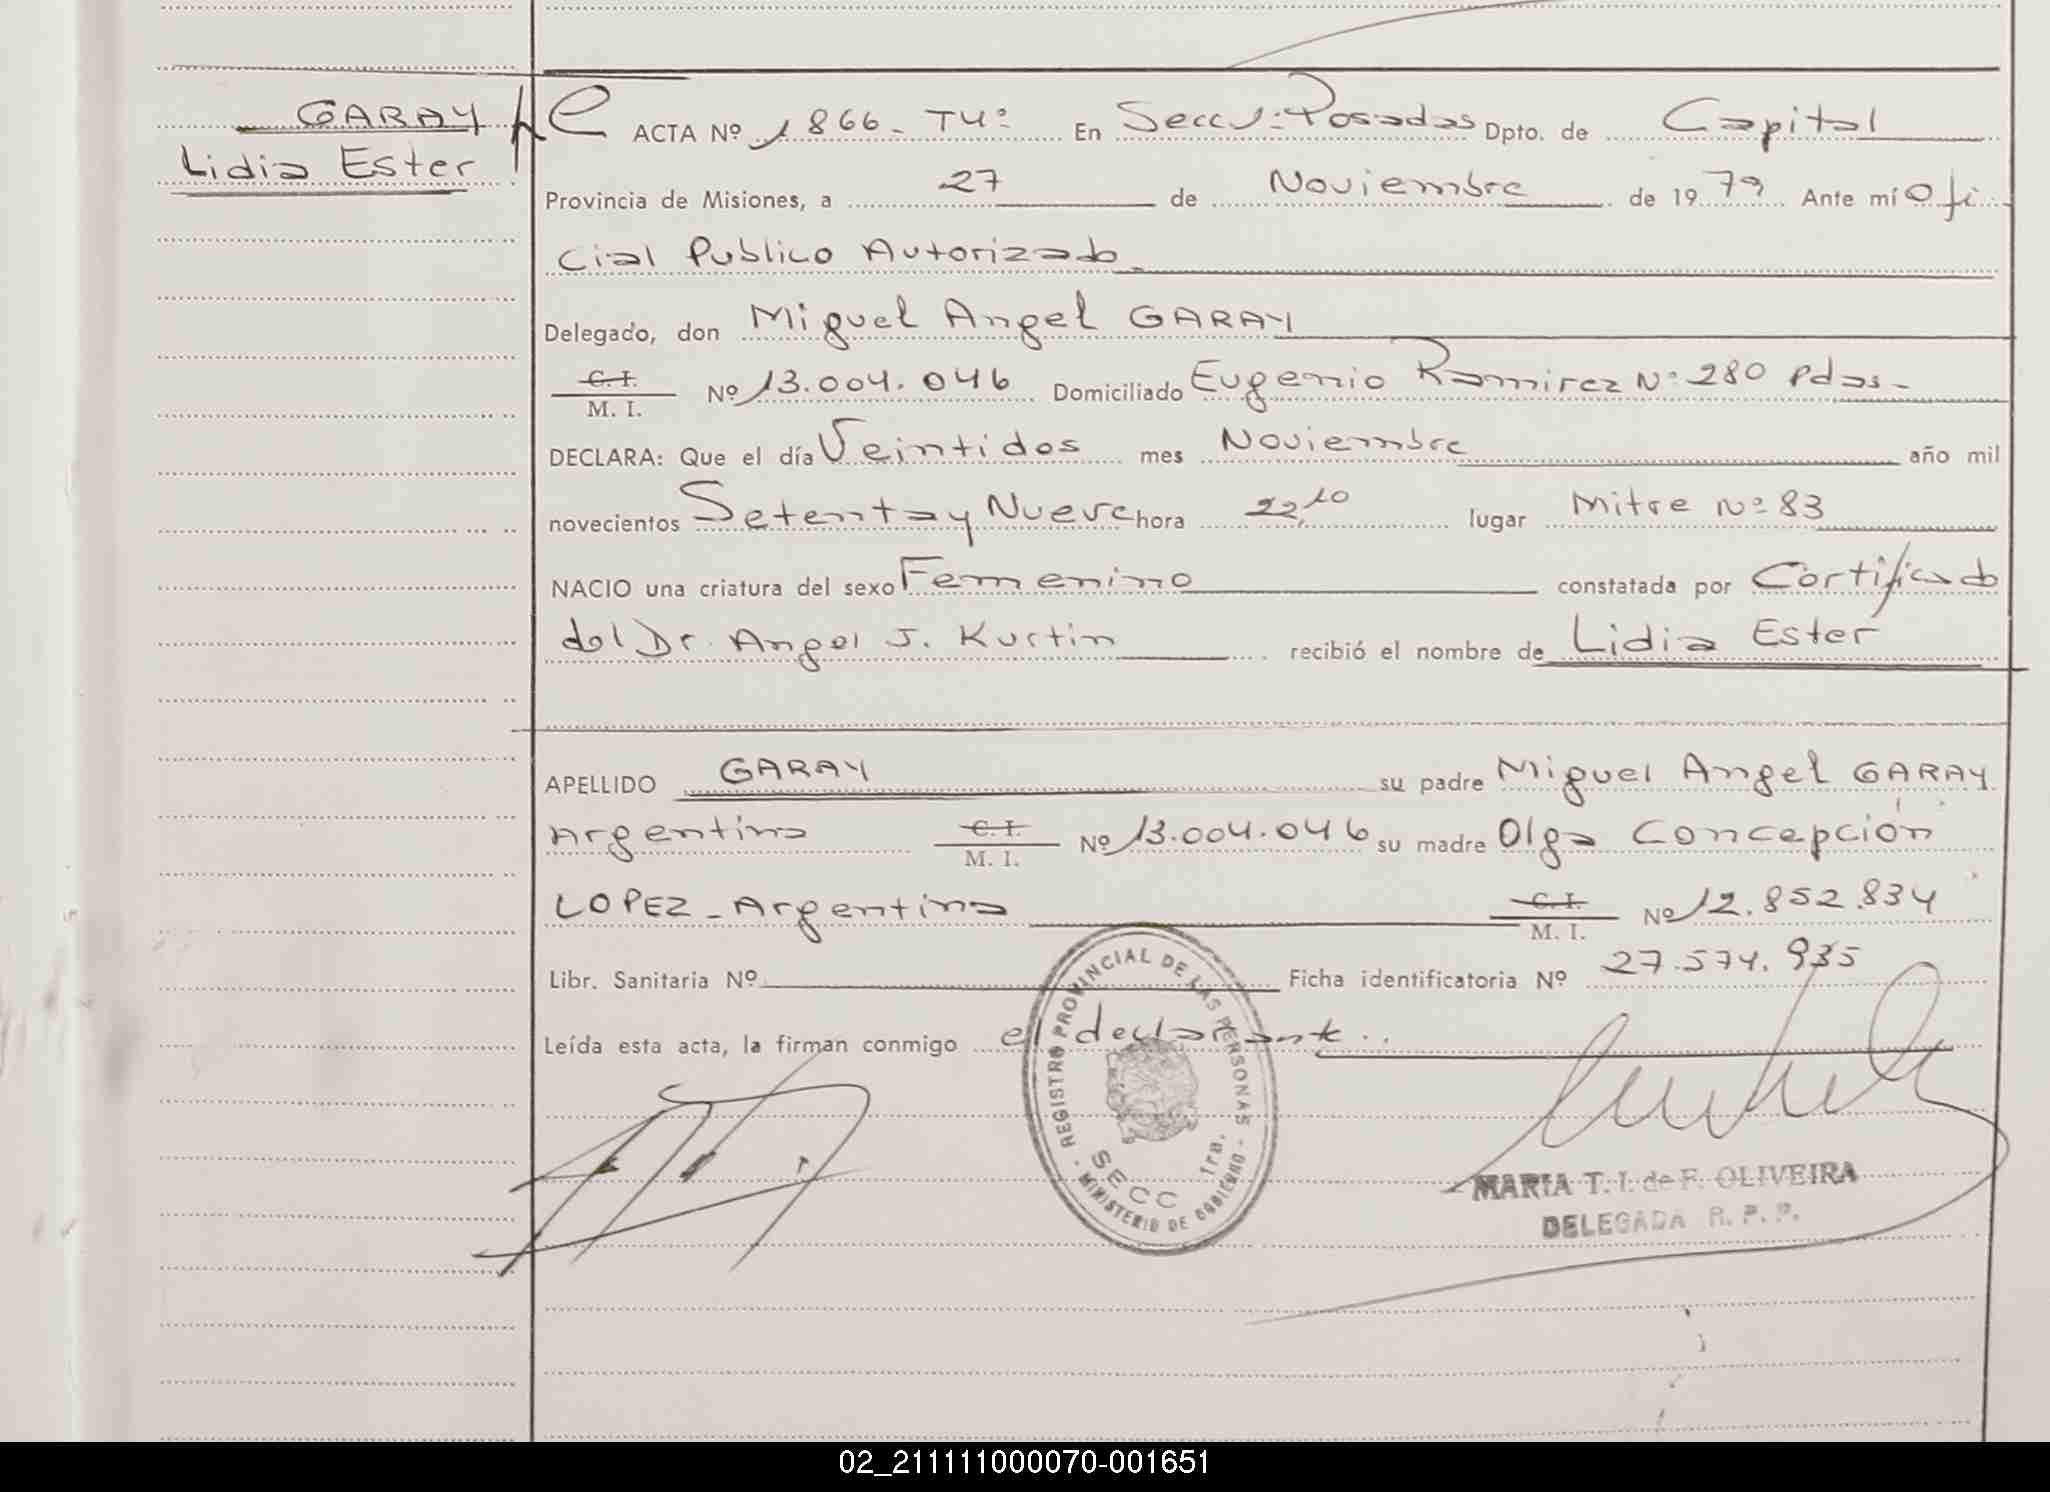 GARAY
Lidia Ester
ACTA Nº 1866 - Tº 4º En Secc 1ª Posadas Dpto. de Capital
Provincia de Misiones, a 27 de Noviembre de 1979 Ante mí Ofi
cial Publico Autorizado
Delegado, don Miguel Angel GARAY
C. I.
M. I. Nº 13.004.046 Domiciliado Eugenio Ramirez Nº 280 Pdas-
DECLARA: Que el día Veintidos mes Noviembre año mil
novecientos Setenta y Nueve hora 22,10 lugar Mitre Nº 83
NACIO una criatura del sexo Femenino constatada por Certificado
del Dr. Angel J. Kurtin recibió el nombre de Lidia Ester
APELLIDO GARAY su padre Miguel Angel GARAY
Argentino C. I.
M. I. Nº 13.004.046 su madre Olga Concepción
LOPEZ - Argentina C. I.
M. I. Nº 12.852.834
Libr. Sanitaria Nº Ficha identificatoria Nº 27.574.935
Leída esta acta, la firman conmigo el declarante..
REGISTRO PROVINCIAL DE LAS PERSONAS
SECC 1ra.
- MINISTERIO DE GOBIERNO -
MARIA T. I. de F. OLIVEIRA
DELEGADA R. P. P.
02_211111000070-001651